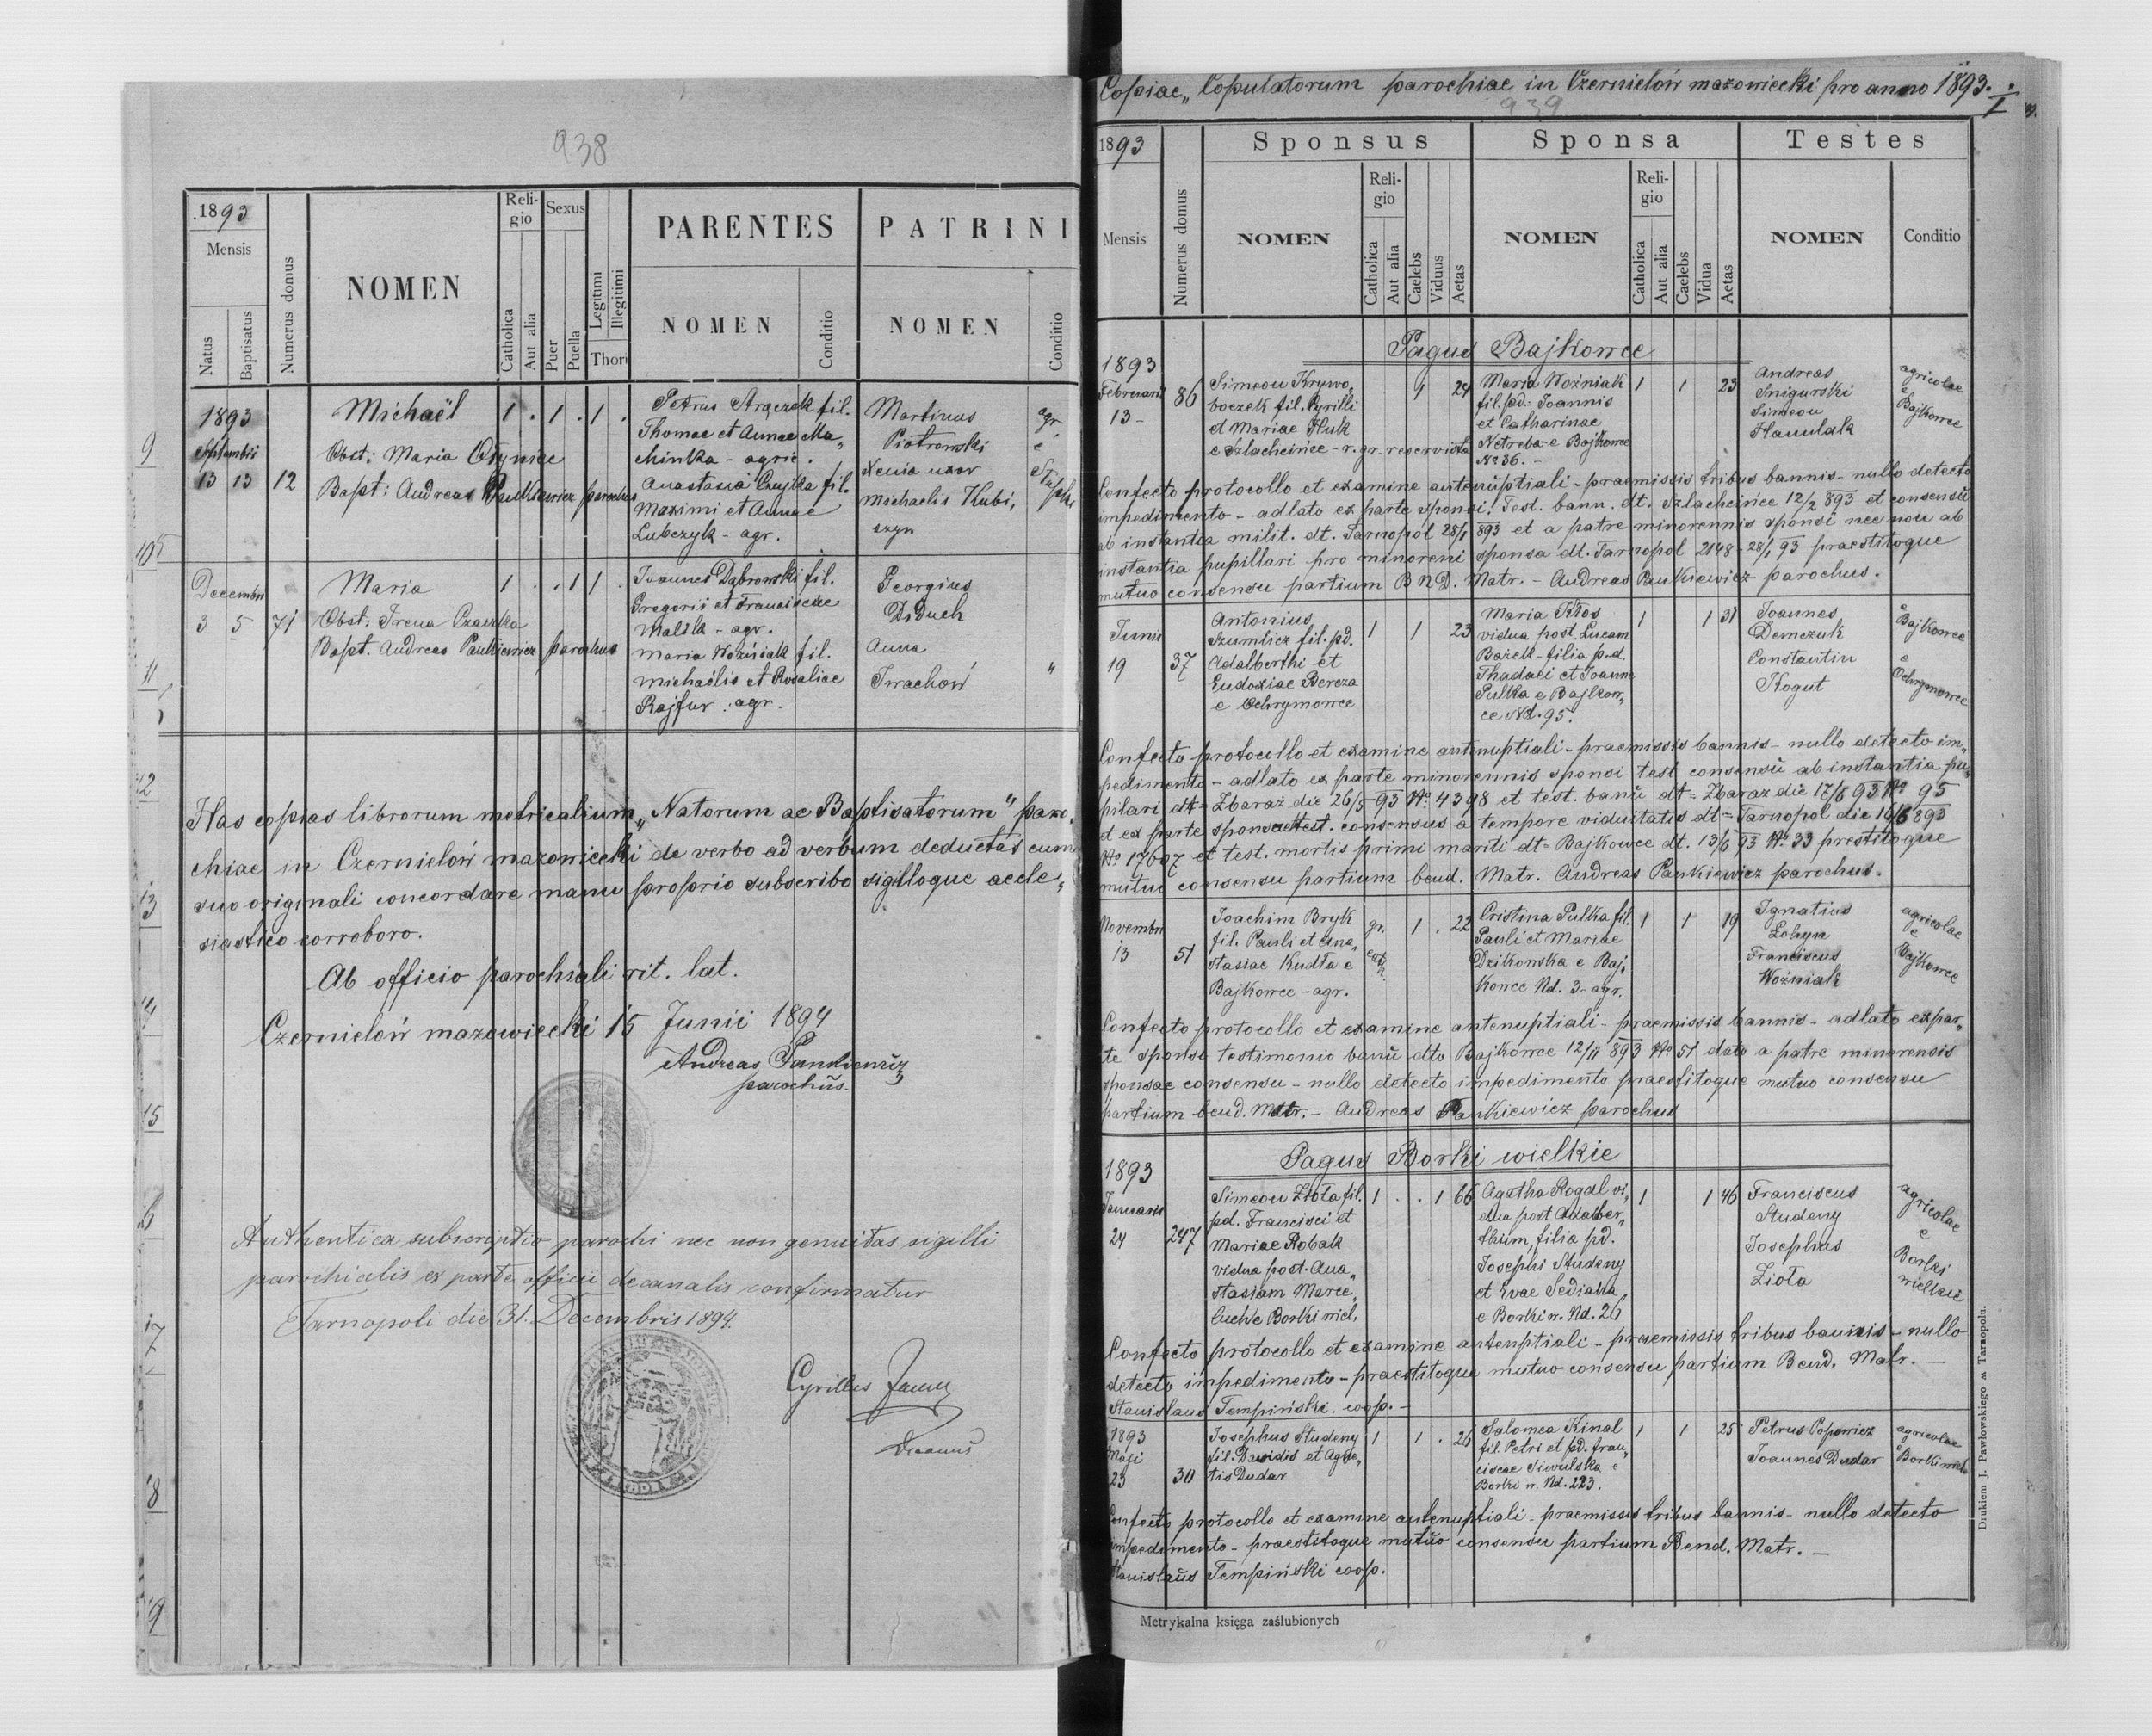 938
1893
Mensis
Natus
Baptisatus
Numerus domus
NOMEN
Reli-
gio
Catholica
Aut alia
Sexus
Puer
Puella
Legitimi
Illegitimi
Thori
PARENTES
NOMEN
Conditio
PATRINI
NOMEN
Conditio
1893
Septembri
13 13 12
Michaël 1 . 1 . 1 .
Obst: Maria
Bapt: Andreas Pankiewicz parochus
Petrus fil.
Thomae et Annae Ma„
chinka - agric.
Anastasia Czujka fil.
Maximi et Annae
Lubczyk - agr.
Martinus
Piotrowski
Xenia uxor
Michaelis Kubi„
szyn
agr
e
Decembri
3 5 71
Maria 1 . . 1 1 .
Obst: Irena
Bapt. Andreas Pankiewicz parochus
Joannes Dąbrowski fil.
Gregorii et Franciscae
Malik - agr.
Maria Woźniak fil.
Michaëlis et Rosaliae
Rajfur . agr.
Georgius
Diduch
Anna
Iwachów "
Has copias librorum metricalium „Natorum ac Baptisatorum" paro„
chiae in Czernielów mazowiecki de verbo ad verbum deductas cum
suo originali concordare manu proprio subscribo sigilloque eccle„
siastico corroboro.
Ab officio parochiali rit. lat.
Czernielów mazowiecki 15 Junii 1894
Andreas Pankiewicz
parochus.
Authentica subscriptio parochi nec non genuitas sigilli
parochialis ex parte officii decanalis confirmatur
Tarnopoli die 31. Decembris 1894.
Cyrillus
Decanus
9
10
11
12
13
14
15
16
17
18
19
Copiae „Copulatorum parochiae in Czernielów mazowiecki pro anno 1893.
939
I
1893
Mensis
Numerus domus
Sponsus
NOMEN
Reli-
gio
Catholica
Aut alia
Caelebs
Viduus
Aetas
Sponsa
NOMEN
Reli-
gio
Catholica
Aut alia
Caelebs
Vidua
Aetas
Testes
NOMEN
Conditio
Pagus Bajkowce
1893
Februarii
13 -
86
Simeon Krywo„
boczek fil. Cyrilli
et Mariae Huk
e Szlachcińce - r. gr. reservista
1 24
Maria Woźniak
fil. pd. Joannis
et Catharinae
Netreba e Bajkowce
No 36. -
1 1 23
Andreas
Snigurski
Simeon
Hanulak
agricolae
e
Bajkowce
Confecto protocollo et examine antenuptiali - praemissis tribus bannis - nullo detecto
impedimento - adlato ex parte sponsi: Test. bann. dt. Szlachcińce 12/2 893 et consensu
ab instantia milit. dt. Tarnopol 28/1 893 et a patre minorennis sponsi nec non ab
instantia pupillari pro minoreni sponsa dt. Tarnopol 2148 - 28/1 93 praestitoque
mutuo consensu partium BND. Matr. - Andreas Pankiewicz parochus.
Junii
19
37
Antonius
Szumlicz fil. pd.
Adalberthi et
Eudoxiae Bereza
e Ochrymowce
1 1 23
Maria Kłos
vidua post. Lucam
Bażek - filia p.d.
Thadaei et Joanna
Pulka e Bajkow„
ce Nd. 95.
1 1 31
Joannes
Demczuk
Constantin
Kogut
e
Bajkowce
e
Ochrymowce
Confecto protocollo et examine antenuptiali - praemissis bannis - nullo detecto im„
pedimento - adlato ex parte minorennis sponsi test consensu ab instantia pu„
pilari dt= Zbaraż die 26/5 93 No. 4398 et test. banu dt= Zbaraz die 17/6 93 No 95
et ex parte sponsae test. consensus a tempore viduitatis dt= Tarnopol die 16/6 893
No 17607 et test. mortis primi mariti dt= Bajkowce dt. 13/6 93 No 33 prestitoque
mutuo consensu partium bend. Matr. Andreas Pankiewicz parochus.
Novembri
13
51
Joachim Bryk
fil. Pauli et Ana„
stasiae Kudła e
Bajkowce - agr.
gr.
cath.
1 . 22
Cristina Pulka fil.
Pauli et Mariae
Dzikowska e Baj„
kowce Nd. 3 - agr.
1 1 19
Ignatius
Łohyn
Franciscus
Woźniak
agricolae
e
Bajkowce
Confecto protocollo et examine antenuptiali - praemissis bannis - adlato ex par„
te sponsi testimonio banu dto Bajkowce 12/11 893 No 51 dato a patre minorensis
sponsae consensu - nullo detecto impedimento praestitoque mutuo consensu
partium bend. Matr. - Andreas Pankiewicz parochus
Pagus Borki wielkie
1893
Januarii
24
247
Simeon Zioła fil.
pd. Francisci et
Mariae Robak
vidua post. Ana„
stasiam Marce„
luch e Borki wiel.
1 . . 1 66
Agatha Rogal vi„
dua post Adalber„
thum filia pd.
Josephi Studeny
et Evae Sediaha
e Borki w. Nd. 26
1 1 46
Franciscus
Studeny
Josephus
Zioła
agricolae
e
Borki
wielkie
Confecto protocollo et examine antenptiali - praemissis tribus bannis - nullo
detecto impedimento - praestitoque mutuo consensu partium Bend. Matr. -
Stanislaus Tempiński. coop. -
1893
Maji
23
30
Josephus Studeny
fil. Davidis et Agne„
tis Dudar
1 1 . 26
Salomea Kinal
fil. Petri et pd. Fran„
ciscae Siwulska e
Borki w. Nd. 223.
1 1 25
Petrus Popowicz
Joannes Dudar
agricolae
e
Borki wielk
Confecto protocollo et examine antenuptiali - praemissis tribus bannis - nullo detecto
impedimento - praestitoque mutuo consensu partium Bend. Matr. -
Stanislaus Tempiński coop.
Metrykalna księga zaślubionych
Drukiem J. Pawłowskiego w Tarnopolu.